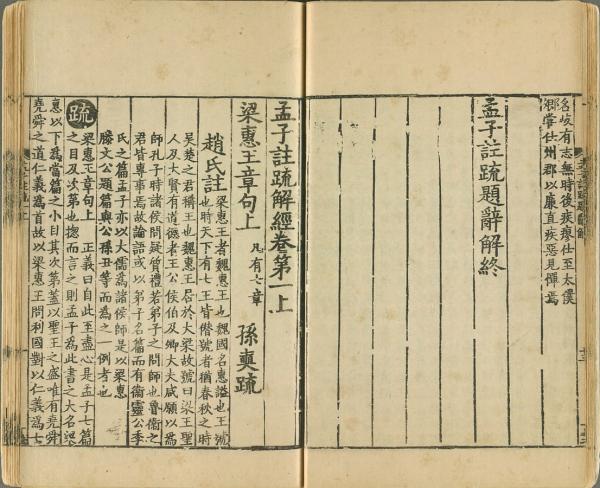 名岐有志無時後疾瘳仕至太僕
卿嘗仕州郡以廉直疾惡見憚焉
孟子註疏題辭解終
孟子註疏解經卷第一上
梁惠王章句上 凡有七章 孫奭疏
趙氏註 梁惠王者魏惠王也魏國名惠謚也王號
也時天下有七王皆僭號者猶春秋之時
吳楚之君稱王也魏惠王居於大梁故號曰梁王聖
人及大賢有道德者王公侯伯及卿大夫咸願以為
師孔子時諸侯問疑質禮若弟子之問師也魯衛之
君皆專事焉故論語或以弟子名篇而有衛靈公季
氏之篇孟子亦以大儒為諸侯師是以梁惠
滕文公題篇與公孫丑等而為之一例者也
疏 梁惠王章句上 正義曰自此至盡心是孟子七篇
之目及次第也揔而言之則孟子為此書之大名梁
惠以下為當篇之小目其次第蓋以聖王之盛唯有堯舜
堯舜之道仁義為首故以梁惠王問利國對以仁義為七